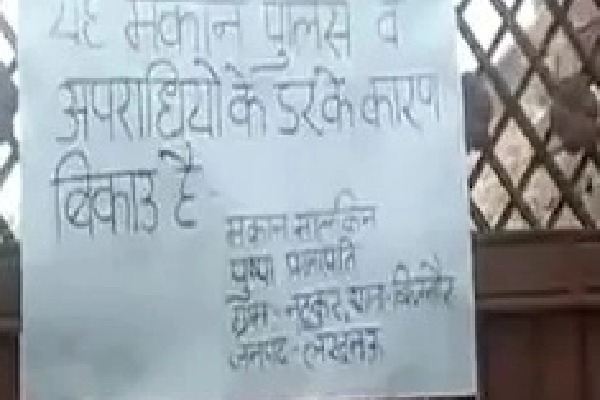 यह मकान पुलिस व
अपराधियो के डर के कारण
बिकाउ है
मकान मालकिन
पुष्पा प्रजापति
ग्राम-नटकुर, थाना-
जनपद-लखनऊ